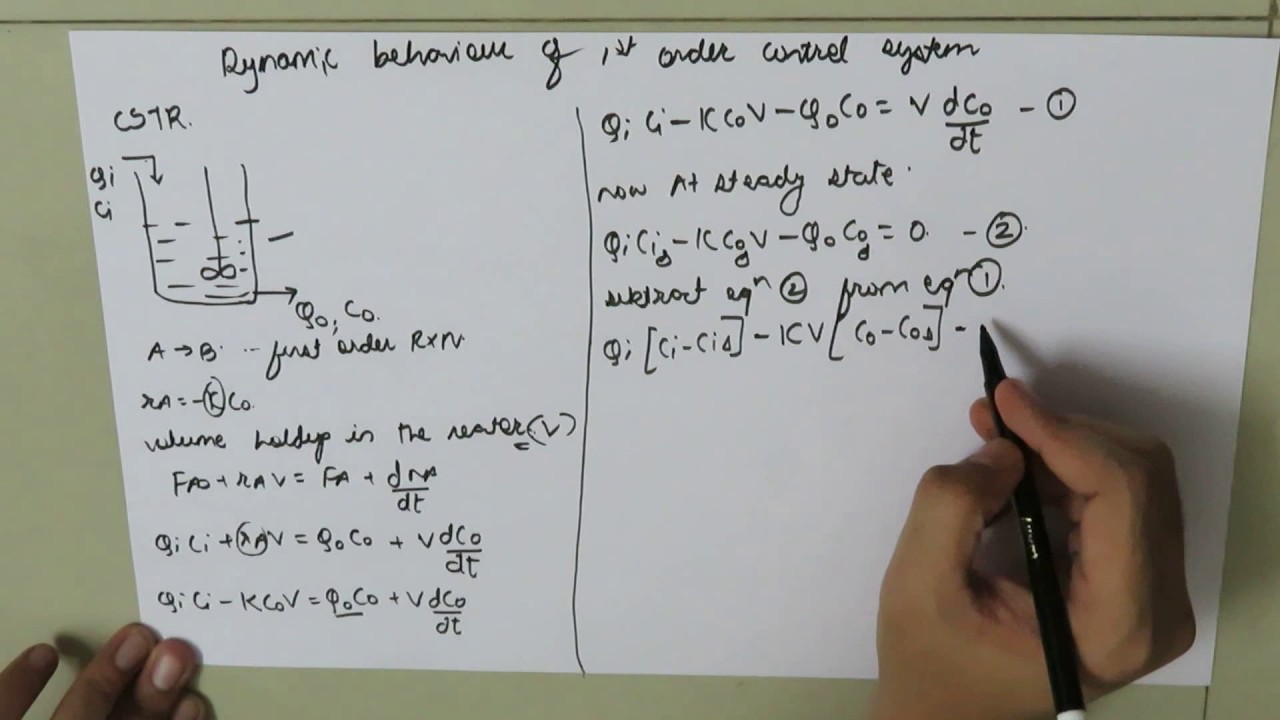 Dynamic behaviour of 1st order control system
CSTR.
qi
Ci
qo, Co.
A → B. -- first order RXN.
rA = -(K)Co.
volume holdup in the reactor (V)
FAO + rAV = FA + dNA/dt
qiCi + (rA)V = qoCo + V dCo/dt
qiCi - KCoV = qoCo + V dCo/dt
qi Ci - KCoV - qoCo = V dCo/dt - ①
now At steady state.
qiCis - KCosV - qoCos = 0. - ②
subtract eqn ② from eqn ①.
qi [Ci - Cis] - KV [Co - Cos] -